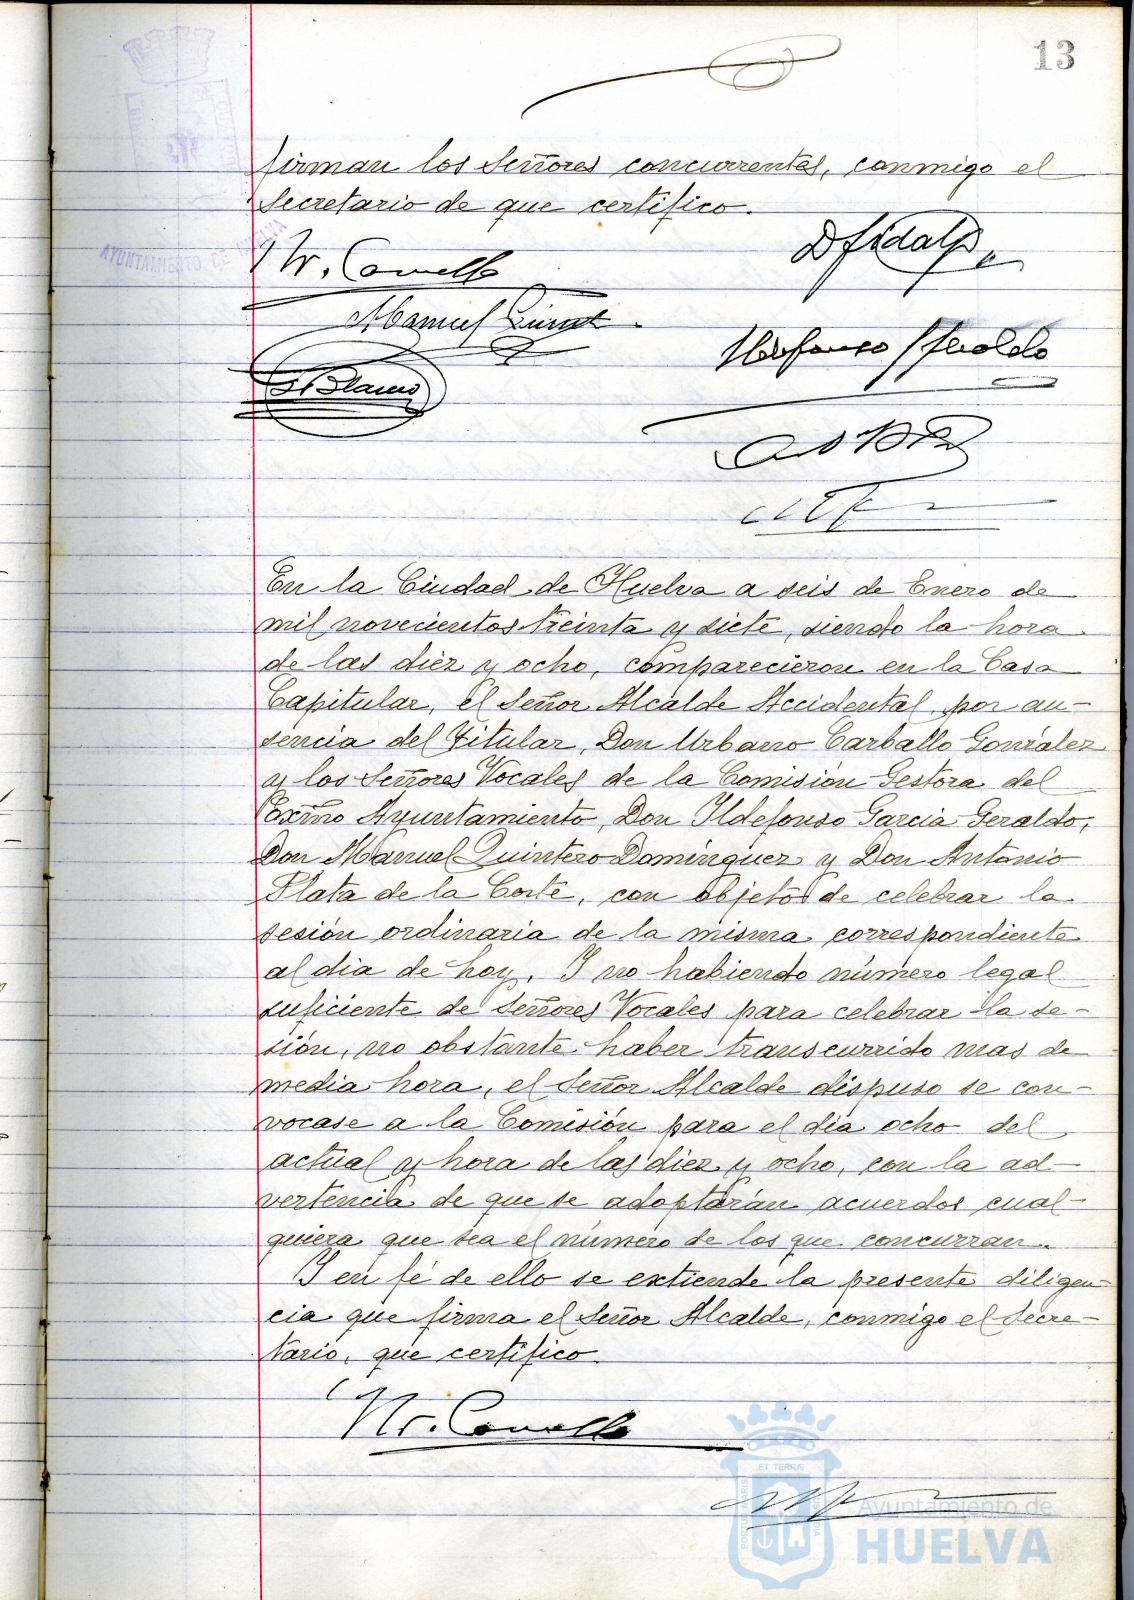 13
firman los Señores concurrentes, conmigo el
Secretario de que certifico.
AYUNTAMIENTO DE
D Fidalgo
Manuel Quint
Ildefonso Geraldo
Blanco
En la Ciudad de Huelva a seis de Enero de
mil novecientos treinta y siete, siendo la hora
de las diez y ocho, comparecieron en la Casa
Capitular, el Señor Alcalde Accidental, por au-
sencia del Titular, Don Urbano Carballo González
y los Señores Vocales de la Comisión Gestora del
Excmo Ayuntamiento, Don Ildefonso Garcia Geraldo,
Don Manuel Quintero Dominguez y Don Antonio
Plata de la Corte, con objeto de celebrar la
sesión ordinaria de la misma correspondiente
al dia de hoy. Y no habiendo número legal
suficiente de Señores Vocales para celebrar la se-
sión, no obstante haber transcurrido mas de
media hora, el Señor Alcalde dispuso se con-
vocase a la Comisión para el dia ocho del
actual y hora de las diez y ocho, con la ad-
vertencia de que se adoptarán acuerdos cual-
quiera que sea el número de los que concurran.
Y en fé de ello se extiende la presente diligen-
cia que firma el Señor Alcalde, conmigo el Secre-
tario, que certifico.
ET TERRÆ
Ayuntamiento de
HUELVA